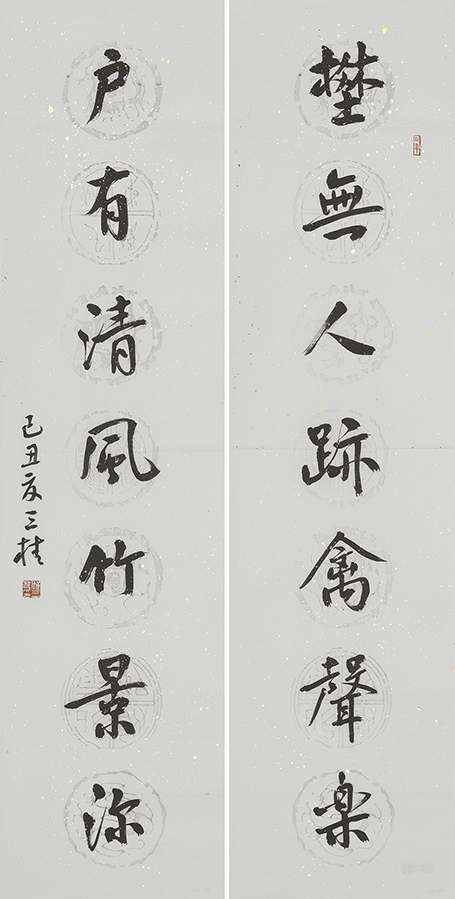 樊無人跡禽聲樂
户有清風竹景深
己丑夏三桂